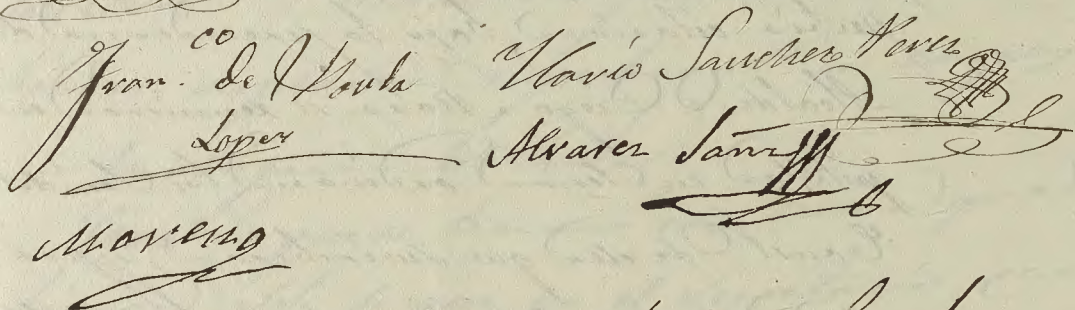 Fran.co de Paula
Lopez
Ylario Sanchez Perez
Alvarez
Moreno